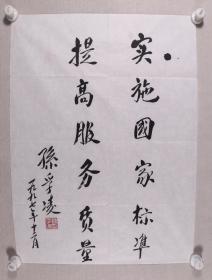 实施國家标準
提高服务质量
孫孚凌
一九九七年十二月